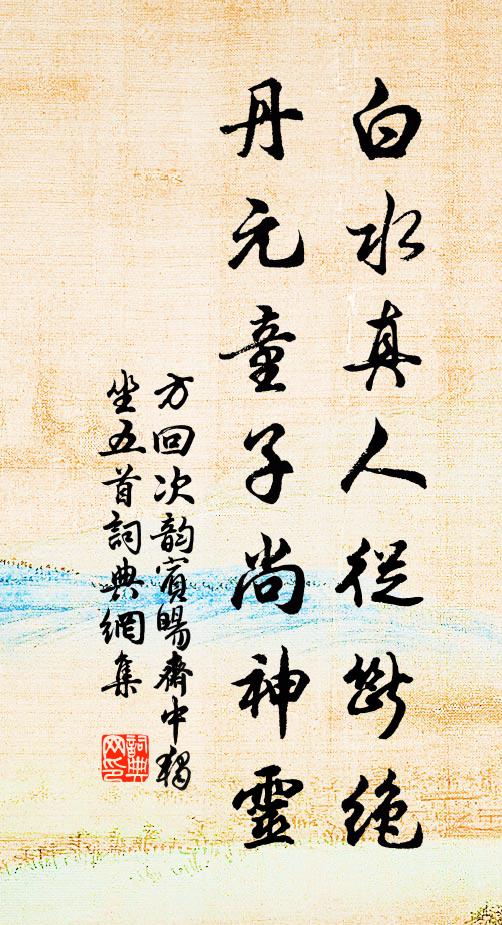 白水真人從斷絶
丹元童子尚神靈
方回次韵賓暘齋中獨
坐五首詞典網集
詞典
网印